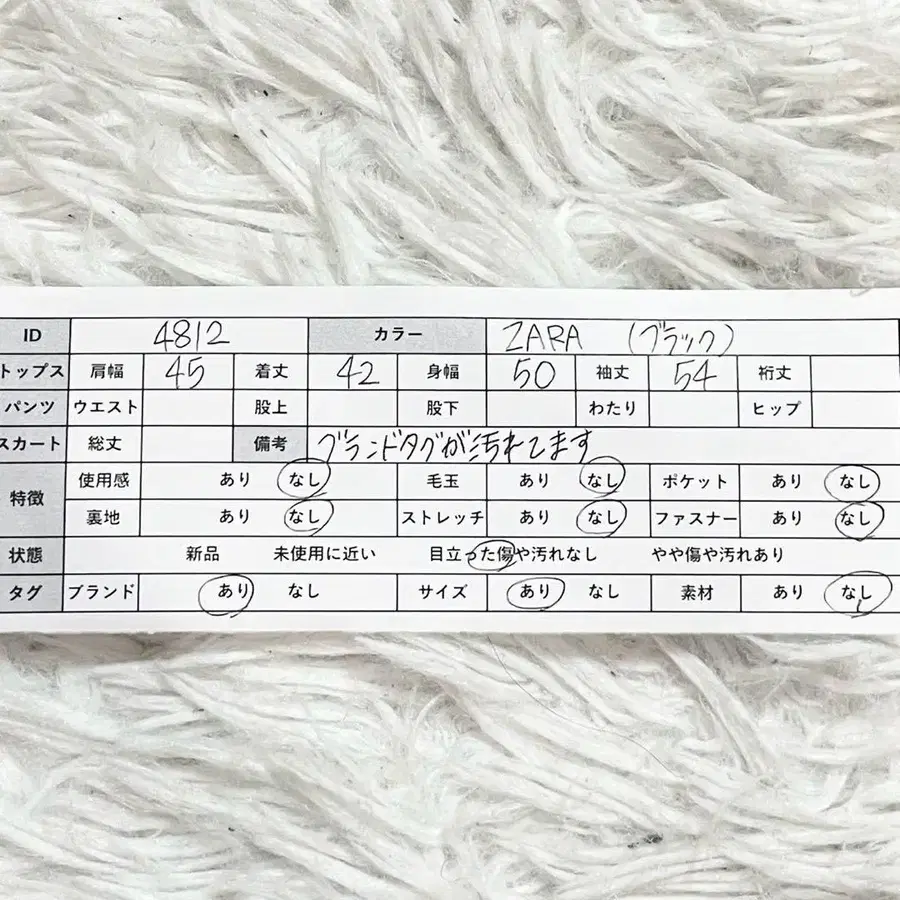 ID 4812 カラー ZARA (ブラック)
トップス 肩幅 45 着丈 42 身幅 50 袖丈 54 裄丈
パンツ ウエスト 股上 股下 わたり ヒップ
スカート 総丈 備考 ブランドタグが汚れてます
特徴 使用感 あり なし 毛玉 あり なし ポケット あり なし
裏地 あり なし ストレッチ あり なし ファスナー あり なし
状態 新品 未使用に近い 目立った傷や汚れなし やや傷や汚れあり
タグ ブランド あり なし サイズ あり なし 素材 あり なし